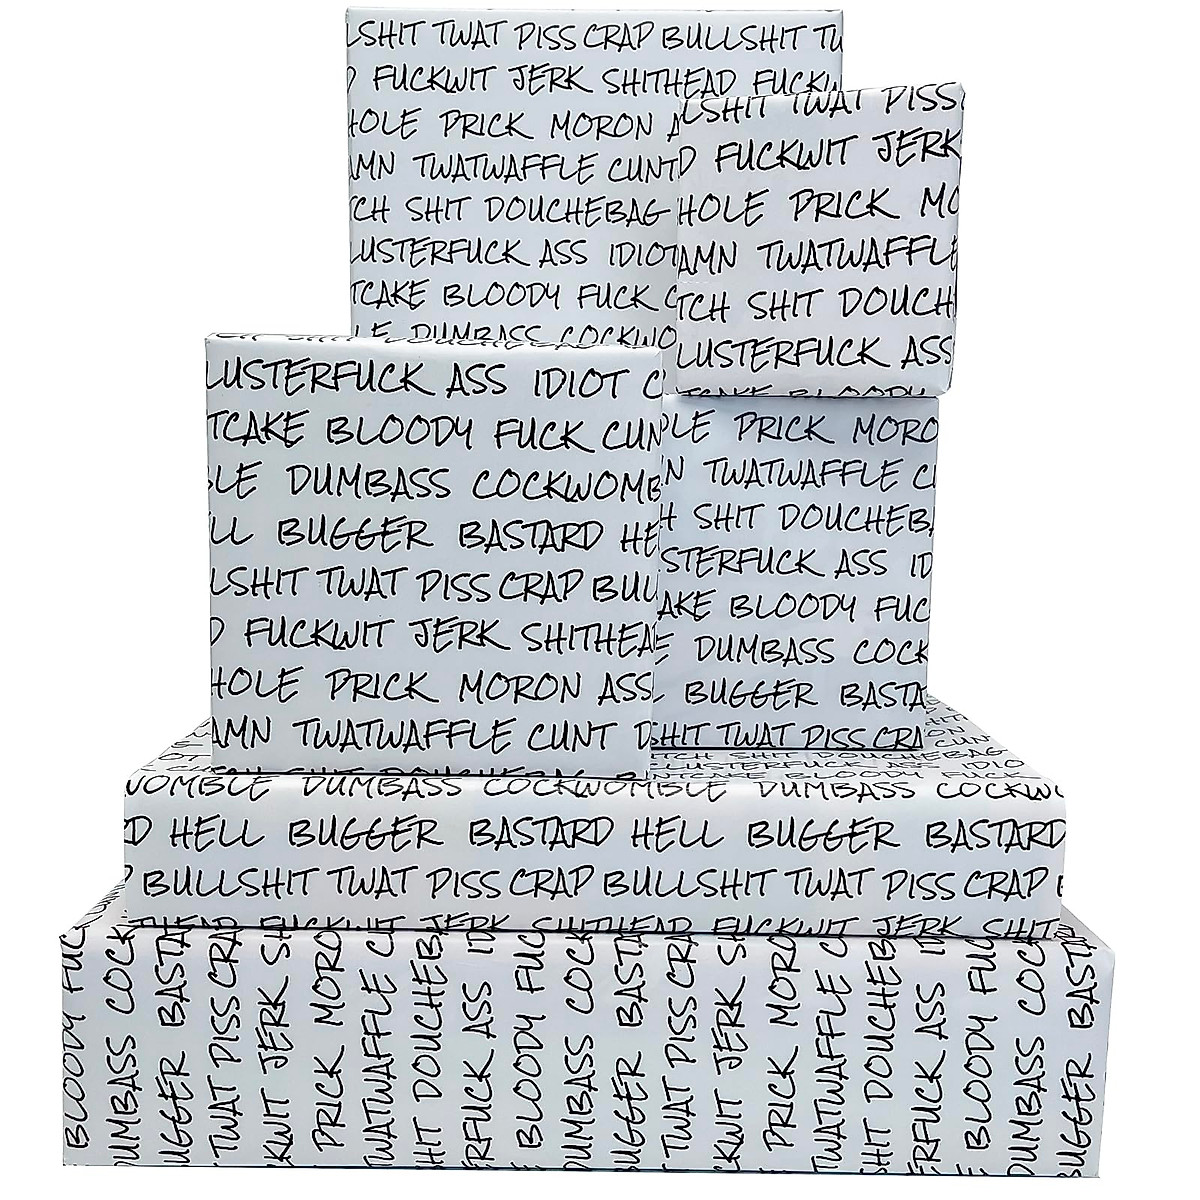 LSHIT TWAT PISS CRAP BULLSHIT TW
D FUCKWIT JERK SHITHEAD FUCKW
HOLE PRICK MORON A
AMN TWATWAFFLE CUNT
TCH SHIT DOUCHEBAG
LUSTERFUCK ASS IDIOT
TCAKE BLOODY FUCK C
LE DUMBASS COCKWO
LSHIT TWAT PISS
D FUCKWIT JERK
HOLE PRICK MO
AMN TWATWAFFLE
TCH SHIT DOUCH
LUSTERFUCK ASS
TCAKE BLOODY
LUSTERFUCK ASS IDIOT C
TCAKE BLOODY FUCK CUN
BLE DUMBASS COCKWOMB
LL BUGGER BASTARD HE
LSHIT TWAT PISS CRAP BUL
D FUCKWIT JERK SHITHEA
HOLE PRICK MORON ASS
AMN TWATWAFFLE CUNT D
TCH SHIT DOUCHEBAG
OLE PRICK MORO
N TWATWAFFLE C
H SHIT DOUCHEB
STERFUCK ASS ID
AKE BLOODY FUC
E DUMBASS COCK
L BUGGER BASTA
SHIT TWAT PISS CRA
TCH SHIT DOUCHEBAG
CLUSTERFUCK ASS IDIO
NTCAKE BLOODY FUCK
WOMBLE DUMBASS COCKWOMBLE DUMBASS COCKW
D HELL BUGGER BASTARD HELL BUGGER BASTARD
BULLSHIT TWAT PISS CRAP BULLSHIT TWAT PISS CRAP
THEAD FUCKWIT JERK SHITHEAD FUCKWIT JERK SHIT
BLOODY FUC
DUMBASS COCK
UGGER BASTA
TWAT PISS CRAP
CKWIT JERK SH
PRICK MORO
TWATWAFFLE C
HIT DOUCHEB
ERFUCK ASS ID
BLOODY FUC
DUMBASS COC
UGGER BASTA
TWAT PISS CRAP
CKWIT JERK SH
PRICK MORO
TWATWAFFLE C
HIT DOUCHEB
ERFUCK ASS ID
E BLOODY FUC
DUMBASS COC
BUGGER BASTA